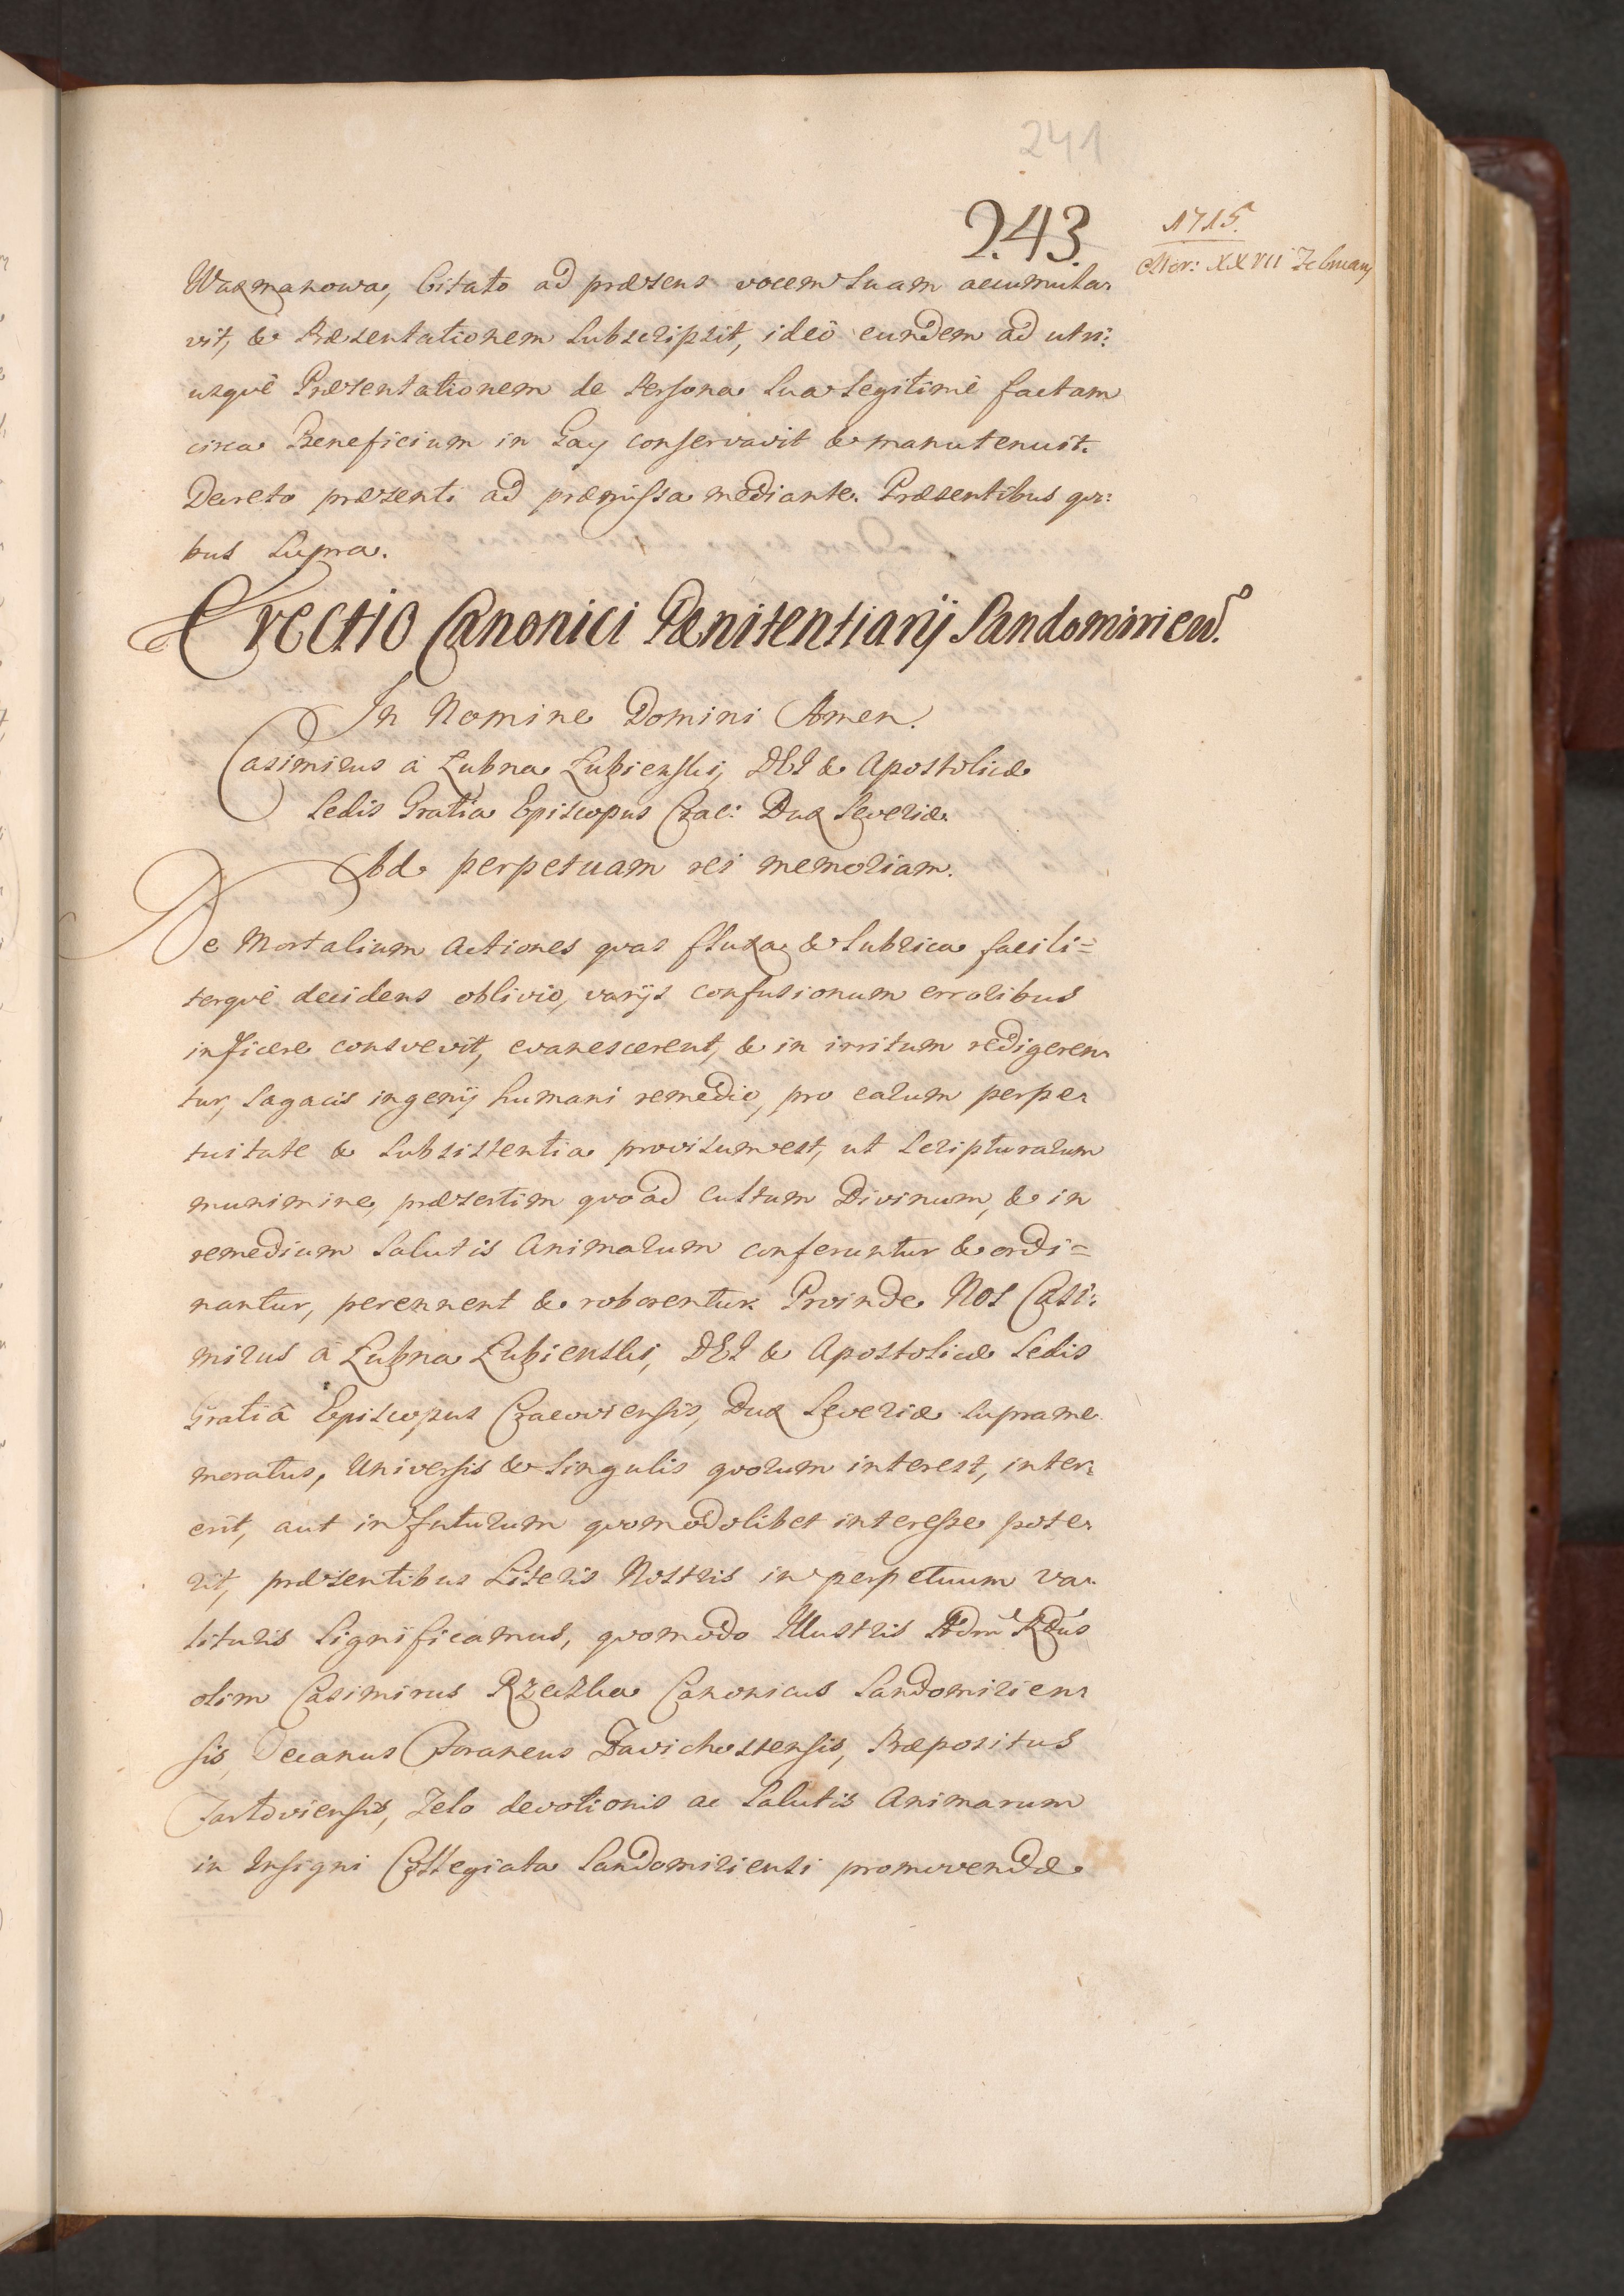 241
243.
1715.
Mer: XXVII Februarij
Waxmanowa, Citato ad præsens vocem suam accumula-
vit, & Præsentationem subscripsit, ideò eundem ad utri:
usquè Præsentationem de Persona sua legitimè factam
circa Beneficium in Gay conservavit & manutenuit.
Decreto præsenti ad præmissa mediante. Præsentibus qvi:
bus supra.
Erectio Canonici Pænitentiarij Sandomirien.
In Nomine Domini Amen.
Casimirus à Łubna Łubienski, DEI & Apostolicæ
Sedis Gratia Episcopus Crac: Dux Severiæ
Ad perpetuam rei memoriam.
Ne Mortalium Actiones qvas fluxa & lubrica facili=
terquè decidens oblivio, varijs confusionum erroribus
inficere consvevit, evanescerent, & in irritum redigeren-
tur, sagacis ingenij humani remedio, pro earum perpe-
tuitate & subsistentia provisum est, ut scripturarum
munimine, præsertim qvo ad cultum Divinum, & in
remedium salutis Animarum conferuntur & ordi=
nantur, perennent & roborentur. Proinde Nos Casi:
mirus à Łubna Łubienski, DEI & Apostolicæ Sedis
Gratiâ Episcopus Cracoviensis, Dux Severiæ supra me
moratus, Universis & singulis qvorum interest, inter-
erit, aut in futurum qvomodolibet interesse pote-
rit, præsentibus Literis Nostris in perpetuum va-
lituris significamus, qvomodo Illustris Adm Rdus
olim Casimirus Rzeczka Canonicus Sandomirien-
sis, Decanus Foraneus Zavichostensis, Præpositus
Tarloviensis, Zelo devotionis ac salutis Animarum
in Insigni Collegiata Sandomiriensi promovendæ